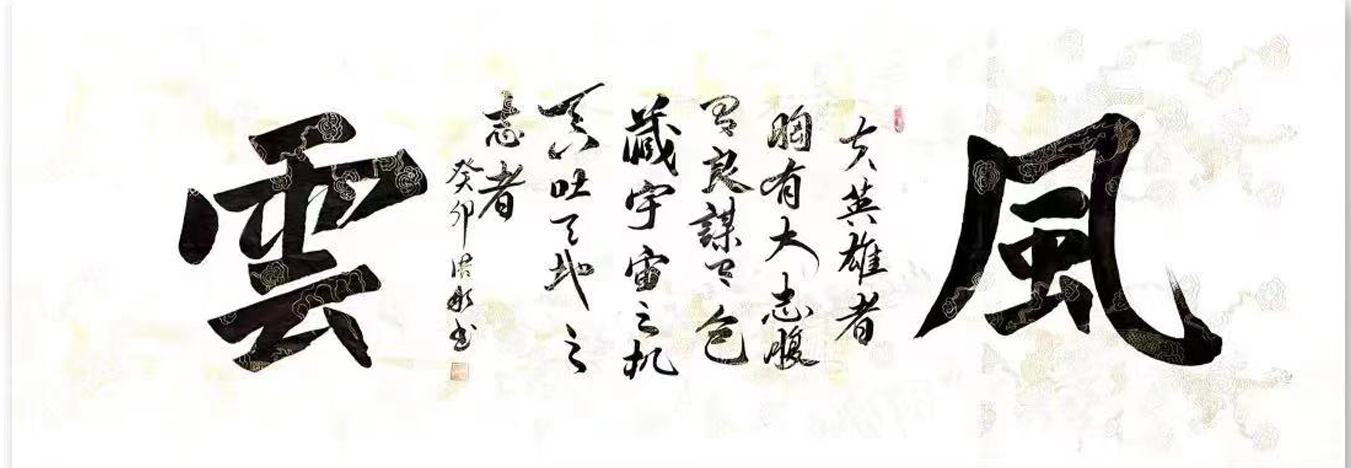 風
夫英雄者
胸有大志腹
有良謀有包
藏宇宙之机
吞吐天地之
志者
癸卯 书
雲